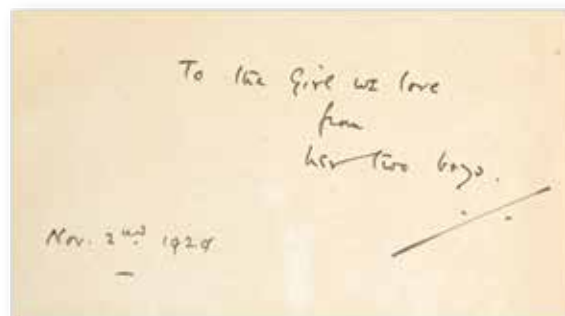 To the Girl we love
from
her two boys.
Nov. 2nd 1929